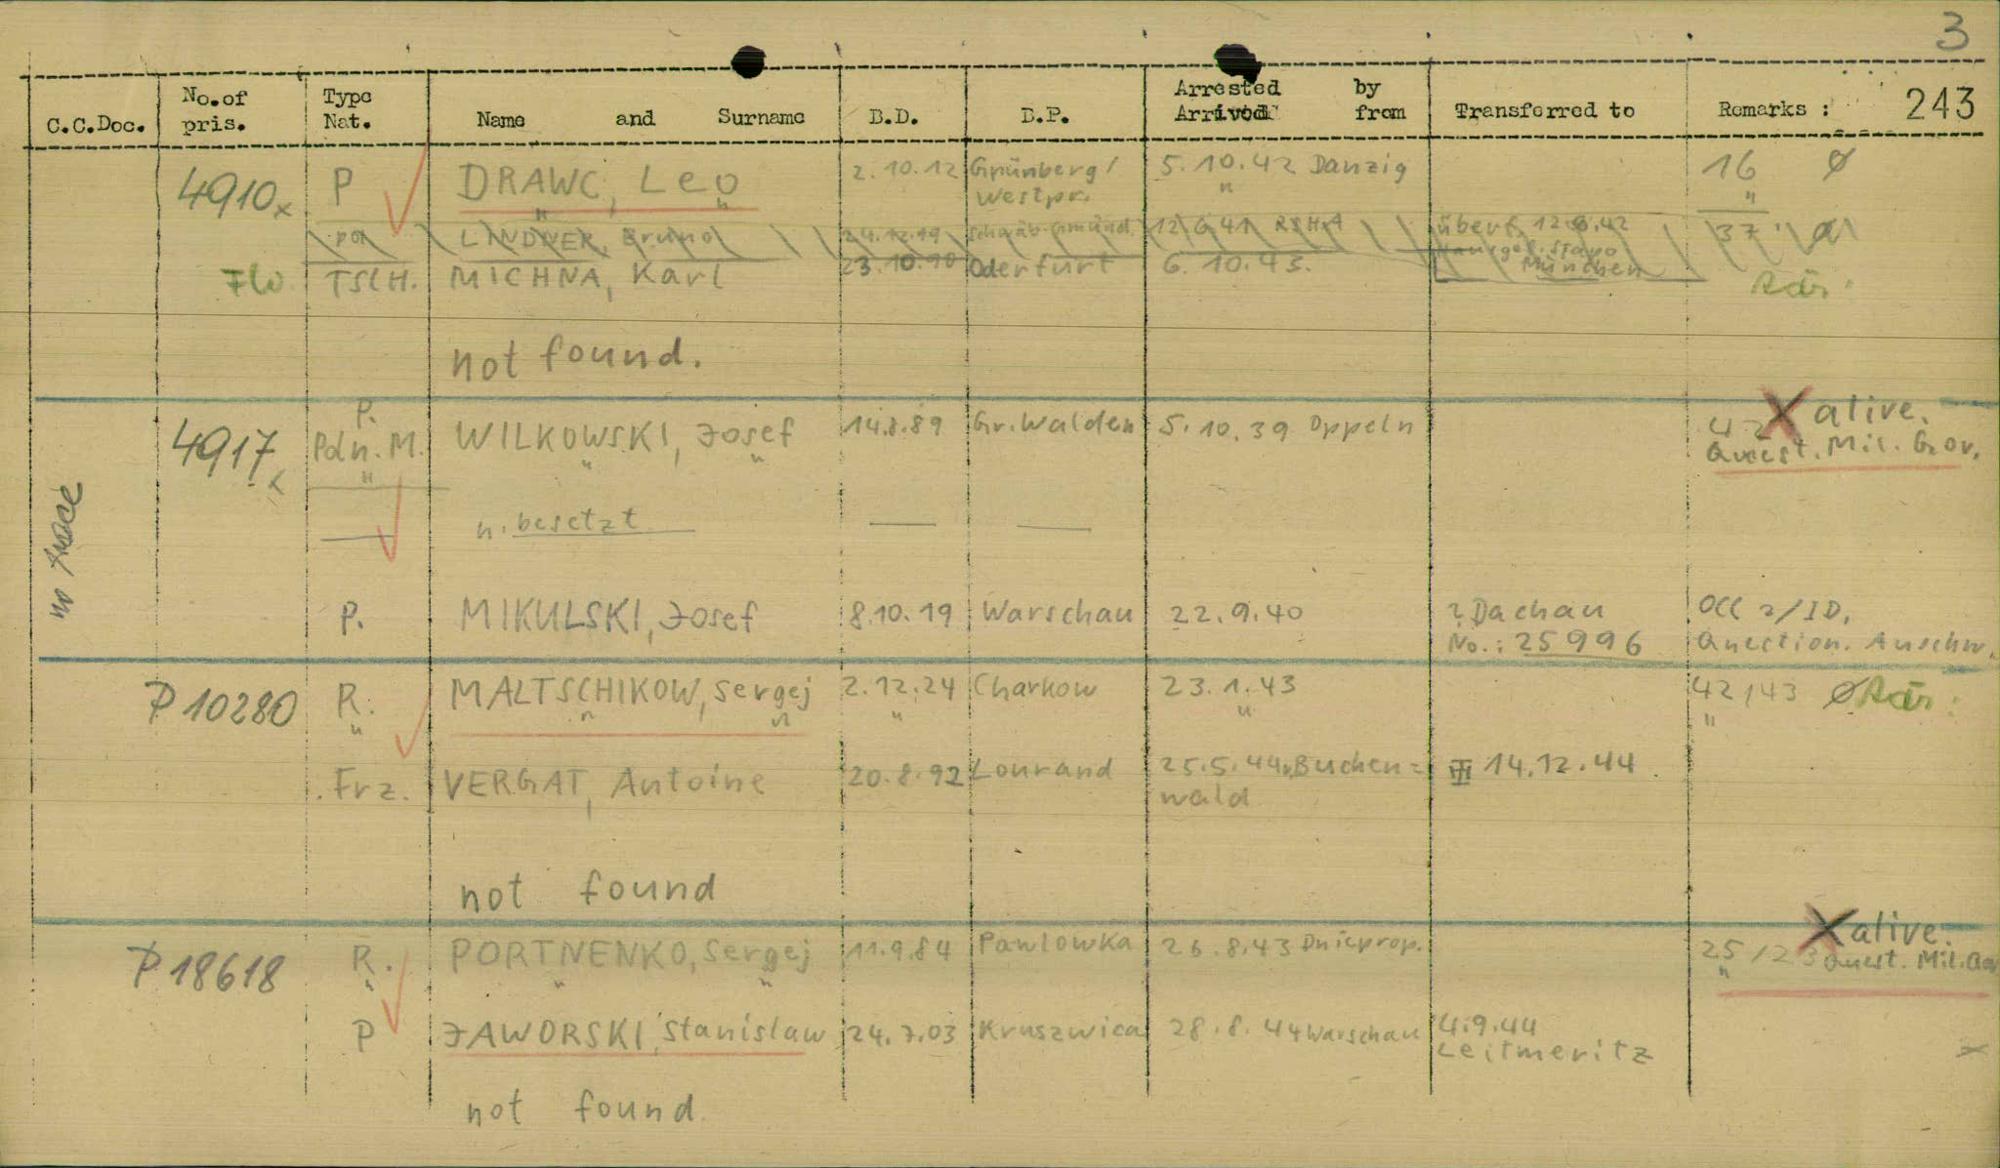 3
C.C.Doc. No.of pris. Type Nat. Name and Surname B.D. B.P. Arrested by Arrived from Transferred to Remarks : 243
4910x P DRAWC, Leo 2.10.12 Grünberg/ Westpr. 5.10.42 Danzig 16 Ø
LINDNER, Bruno 24.12.19 Schwäb. Gmünd 12.6.41 RSHA überf. 12.6.42 Stapo München 37
Flo. TSCH. MICHNA, Karl 23.10.10 Oderfurt 6.10.43.
not found.
X alive.
4917x P. Poln. M. WILKOWSKI, Josef 14.8.89 Gr. Walden 5.10.39 Oppeln 42 Quest. Mil. Gov.
no trace
— n. besetzt — —
P. MIKULSKI, Josef 8.10.19 Warschau 22.9.40 ? Dachau OCC 2/ID,
No.: 25996 Question. Auschw.
P 10280 R. MALTSCHIKOW, Sergej 2.12.24 Charkow 23.1.43 42/43 Ø
Frz. VERGAT, Antoine 20.8.92 Lourand 25.5.44 Buchen=
wald 14.12.44
not found
X alive.
P 18618 R. PORTNENKO, Sergej 11.9.84 Pawlowka 26.8.43 Dnieprop. 25/23 Quest. Mil. Gov
P JAWORSKI, Stanislaw 24.7.03 Kruszwica 28.8.44 Warschau 4.9.44
Leitmeritz
not found.